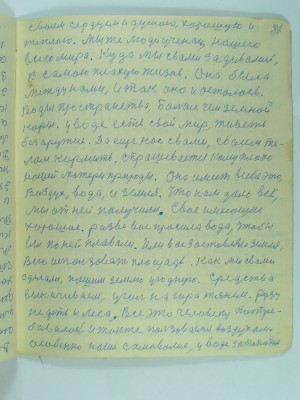 своим сердцем и душою, хорошую и
теплого. Мы же модь ученац, нашего
всего мира. Куда мы с вами задевались
в самою плохую жизнь. Она была
между нами, и так оно и осталось.
Воды пространства, больше чем земной
коры. у воде есть свой мир, живеть
без другие. За еще нас с вами, своим те-
лом кормить, спрашивается
нашей матери природы. Она имеет все это,
воздух, вода, и земля. Что нам дало все,
мы от ней получили. Свое имеющие
хорошие. разве вас просила вода, чтобы
вы по ней плавали. Или вас заставляла земля.
Всю использовать площадь. Как мы с вами
сделали, пашим землю угодную. Средства
выкачиваем, уголь на гора тяжем. руду
нефть и леса. Все это человеку потре-
бовалось и также пользования воздухом.
особенно наше самоволие, у воде